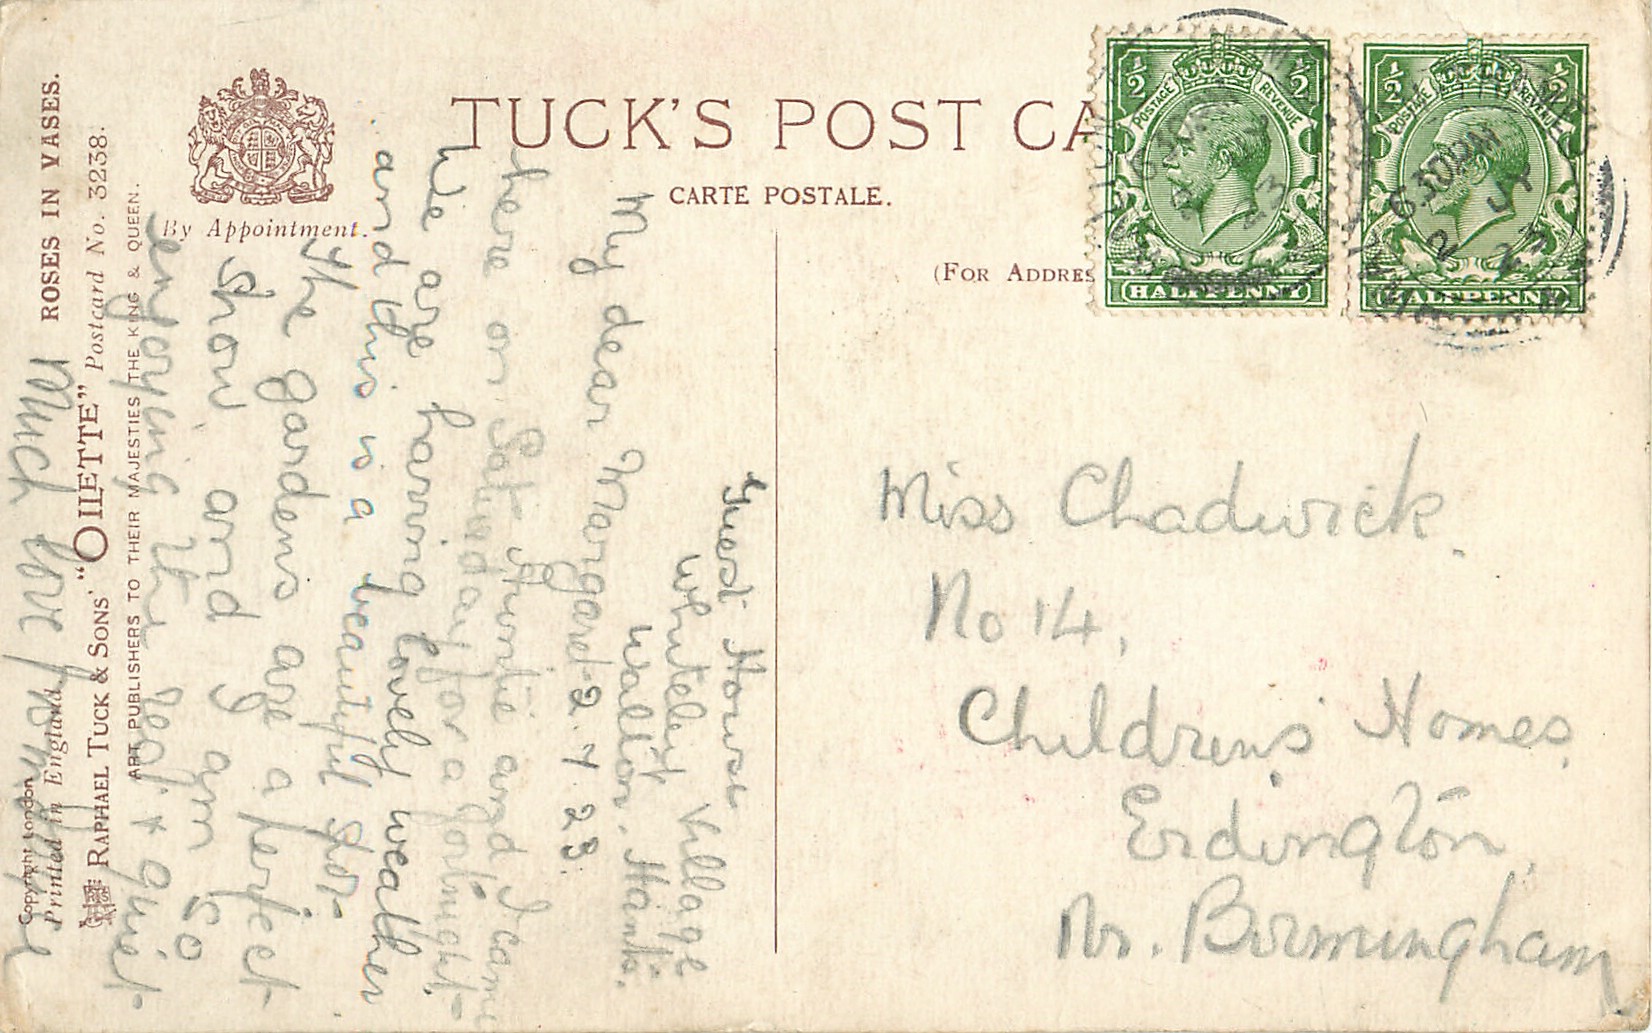 TUCK'S POST CA
CARTE POSTALE.
(FOR ADDRES
By Appointment.
ROSES IN VASES.
RAPHAEL TUCK & SONS' "OILETTE" Postcard No. 3238.
ART PUBLISHERS TO THEIR MAJESTIES THE KING & QUEEN.
Copyright London
Printed in England
POSTAGE REVENUE
½ ½
HALFPENNY
POSTAGE REVENUE
½ ½
HALFPENNY
6.30 AM
2 JY
23
Guest House
Whiteley Village
Walton. Hants.
2.7.23.
My dear Margaret
Auntie and I came
here on Saturday for a fortnight.
We are having lovely weather
and this is a beautiful spot.
The gardens are a perfect
show, and am so
enjoying the rest & quiet
Much love from
Miss Chadwick.
No 14,
Children's Homes,
Erdington,
Nr. Birmingham